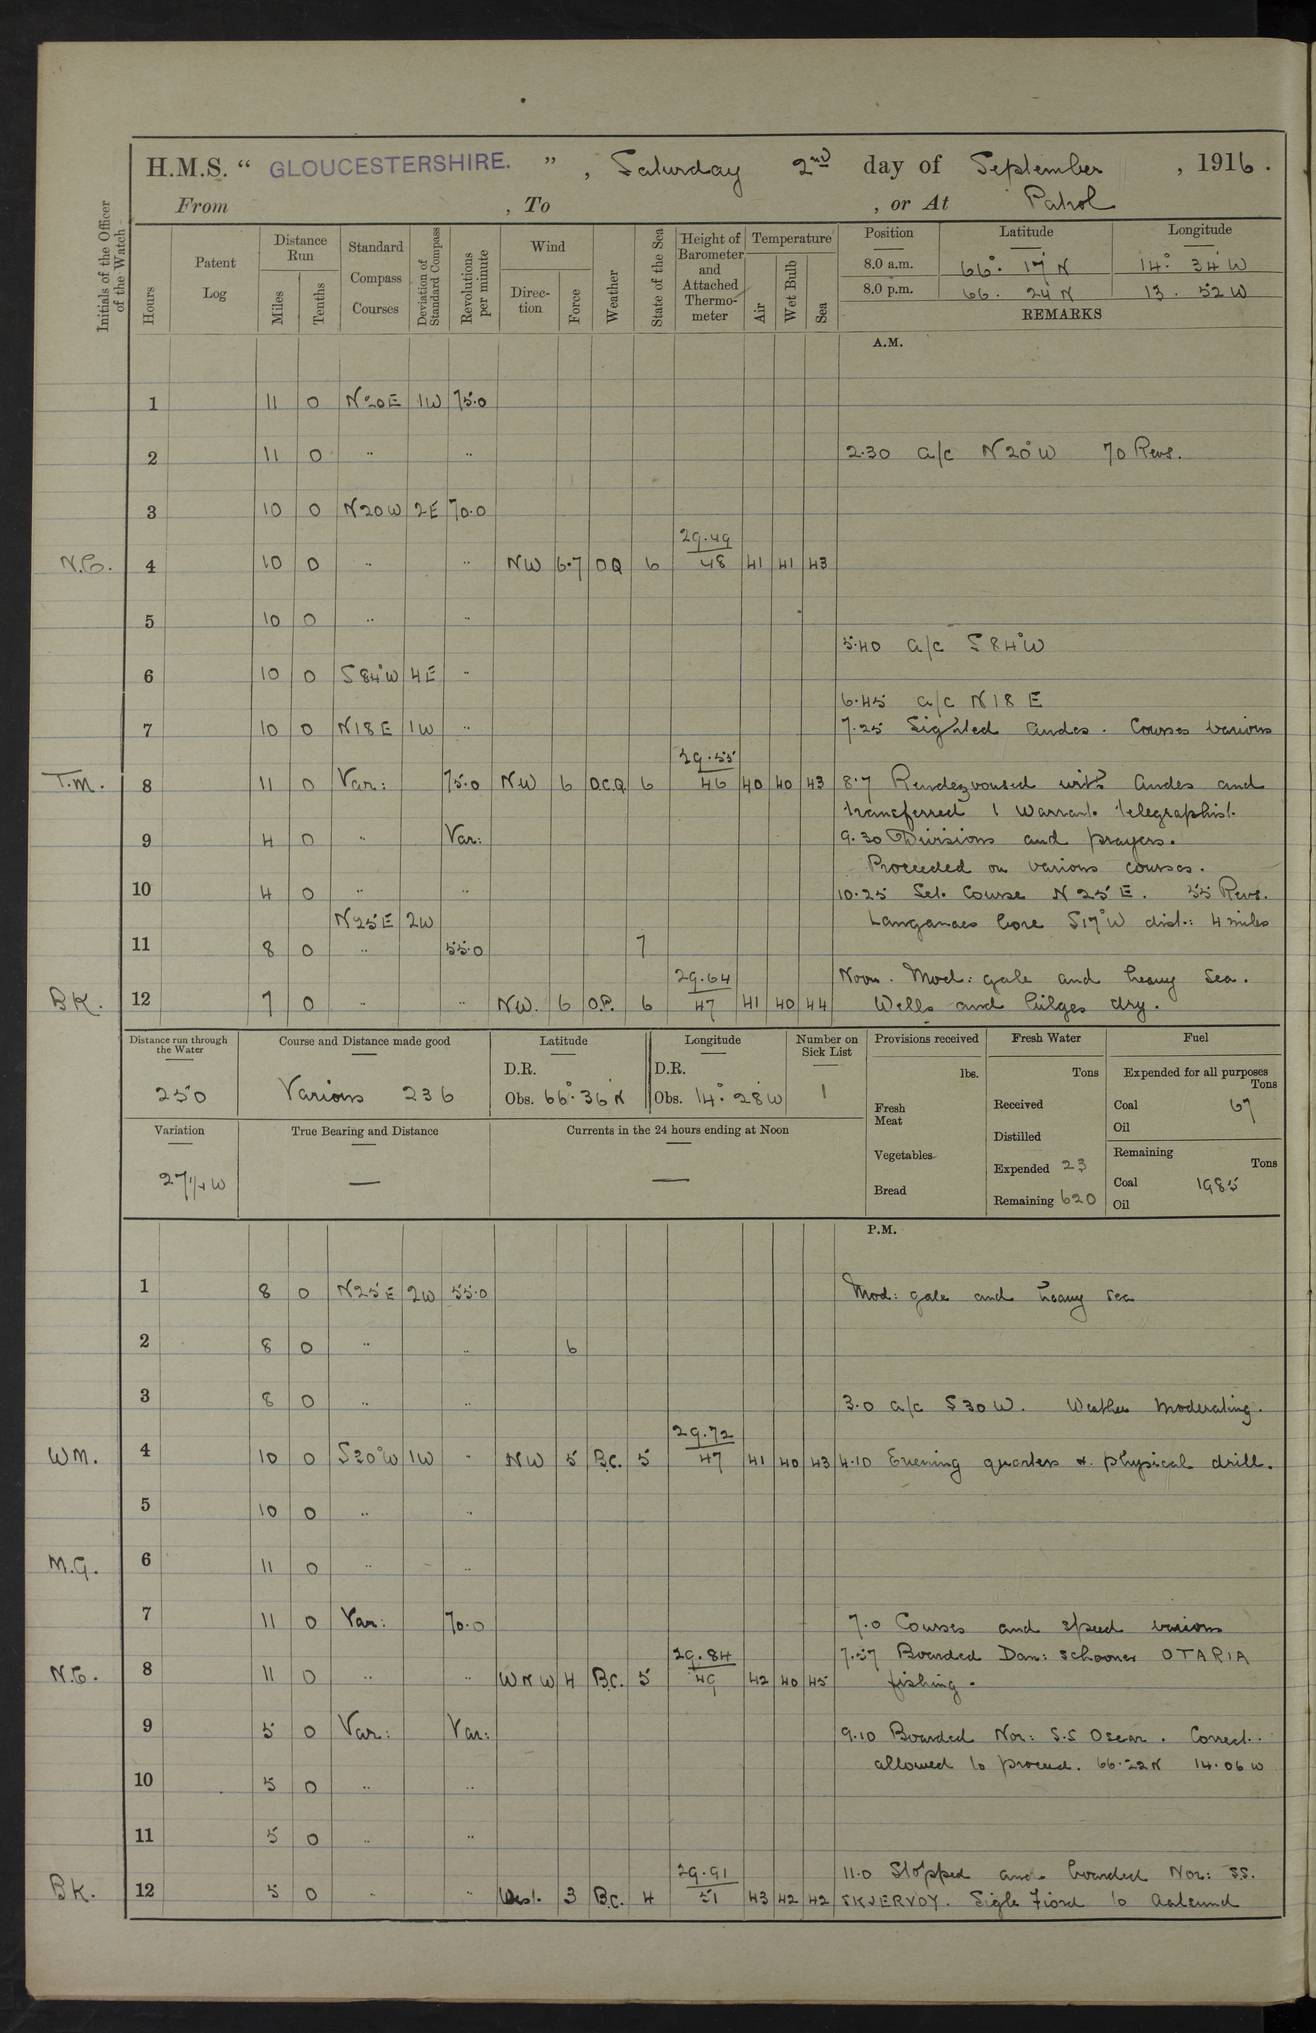 H.M.S. “ GLOUCESTERSHIRE. ” , Saturday 2nd day of September , 1916.
From , To , or At Patrol
Initials of the Officer of the Watch
Hours
Patent Log
Distance Run
Miles
Tenths
Standard Compass Courses
Deviation of Standard Compass
Revolutions per minute
Wind
Direction
Force
Weather
State of the Sea
Height of Barometer and Attached Thermometer
Temperature
Air
Wet Bulb
Sea
Position Latitude Longitude
8.0 a.m. 66° 17' N 14° 34' W
8.0 p.m. 66. 24 N 13. 52 W
REMARKS
A.M.
1 11 0 N20E 1W 75.0
2 11 0 " " 2.30 a/c N 20° W 70 Revs.
3 10 0 N20W 2E 70.0
29.49
N.C. 4 10 0 " " NW 6.7 OQ 6 48 41 41 43
5 10 0 " "
5.40 a/c S 84° W
6 10 0 S84°W 4E "
6.45 a/c N 18 E
7 10 0 N18E 1W " 7.25 Sighted Andes. Courses various
29.55
T.M. 8 11 0 Var: 75.0 NW 6 O.C.Q 6 46 40 40 43 8.7 Rendezvoused with Andes and
transferred 1 Warrant telegraphist.
9 4 0 " Var: 9.30 Divisions and prayers.
Proceeded on various courses.
10 4 0 " " 10.25 Set Course N 25 E. 55 Revs.
N25E 2W Langanaes bore S17°W dist: 4 miles
11 8 0 " 55.0 7
29.64 Noon. Mod: gale and heavy sea.
BK. 12 7 0 " " NW. 6 O.P. 6 47 41 40 44 Wells and bilges dry.
Distance run through the Water
250
Course and Distance made good
Various 236
Latitude
D.R.
Obs. 66° 36' N
Longitude
D.R.
Obs. 14° 28' W
Number on Sick List
1
Provisions received
lbs.
Fresh Meat
Vegetables
Bread
Fresh Water
Tons
Received
Distilled
Expended 23
Remaining 620
Fuel
Expended for all purposes
Tons
Coal 67
Oil
Remaining
Tons
Coal 1985
Oil
Variation
27 1/4 W
True Bearing and Distance
—
Currents in the 24 hours ending at Noon
—
P.M.
1 8 0 N25E 2W 55.0 Mod: gale and heavy sea
2 8 0 " " 6
3 8 0 " " 3.0 a/c S 30 W. Weather moderating.
29.72
WM. 4 10 0 S20°W 1W " NW 5 B.C. 5 47 41 40 43 4.10 Evening quarters & physical drill.
5 10 0 " "
M.G. 6 11 0 " "
7 11 0 Var: 70.0 7.0 Courses and speed various
29.84 7.57 Boarded Dan: schooner OTARIA
N.C. 8 11 0 " " WNW 4 B.C. 5 49 42 40 45 fishing.
9 5 0 Var: Var: 9.10 Boarded Nor: S.S Oscar. Correct.
allowed to proceed. 66.22N 14.06 W
10 5 0 " "
11 5 0 " "
29.91 11.0 Stopped and boarded Nor: S.S.
BK. 12 5 0 " " West. 3 B.C. 4 51 43 42 42 SKJERVOY. Sigle Fiord to Aalesund